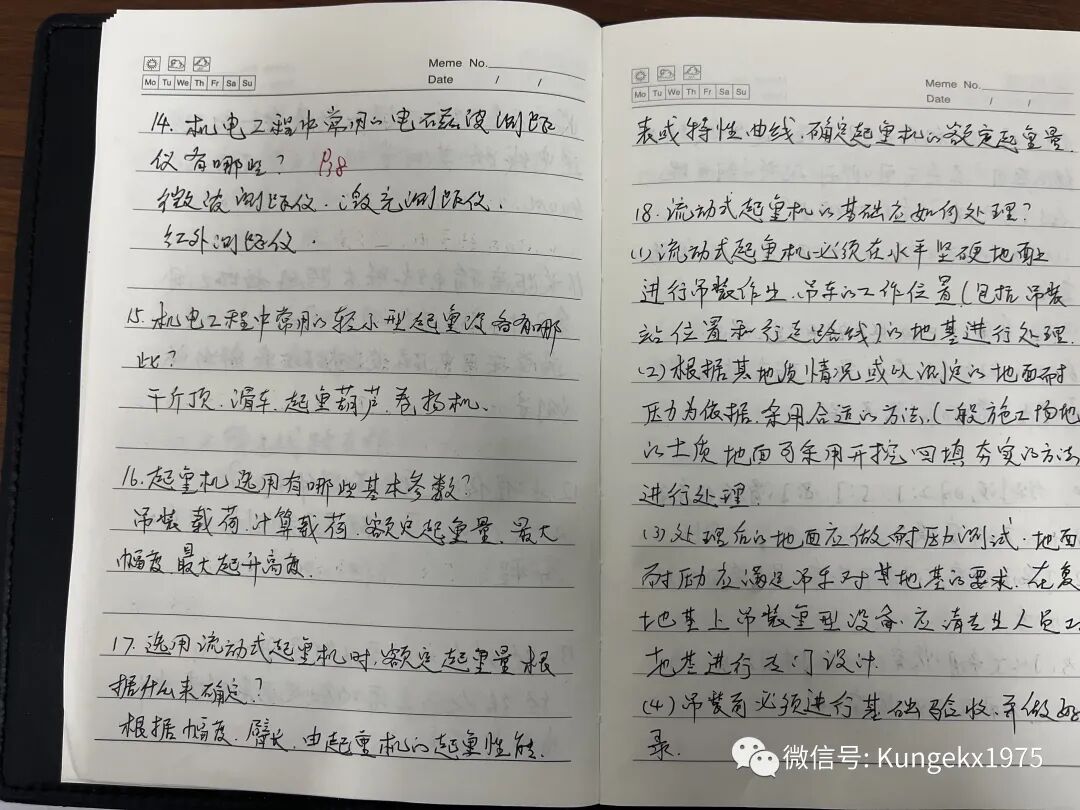 Meme No.
Date / /
Mo Tu We Th Fr Sa Su
14. 机电工程中常用的电磁波测距
仪有哪些? P38
微波测距仪、激光测距仪、
红外测距仪.
15. 机电工程中常用的轻小型起重设备有哪
些?
千斤顶、滑车、起重葫芦、卷扬机、
16. 起重机选用有哪些基本参数?
吊装载荷、计算载荷、额定起重量、最大
幅度、最大起升高度.
17. 选用流动式起重机时,额定起重量根
据什么来确定?
根据幅度、臂长、由起重机的起重性能
Meme No.
Date / /
Mo Tu We Th Fr Sa Su
表或特性曲线,确定起重机的额定起重量.
18. 流动式起重机的基础应如何处理?
(1) 流动式起重机必须在水平坚硬地面上
进行吊装作业.吊车的工作位置(包括吊装
站位置和行走路线)的地基进行处理.
(2) 根据其地质情况或以测定的地面耐
压力为依据,采用合适的方法.(一般施工场地
的土质地面可采用开挖回填夯实的方法
进行处理
(3) 处理后的地面应做耐压力测试.地面
耐压力应满足吊车对其地基的要求.在复
地基上吊装重型设备,应请专业人员
地基进行专门设计.
(4) 吊装前必须进行基础验收.并做好
录.
微信号: Kungekx1975